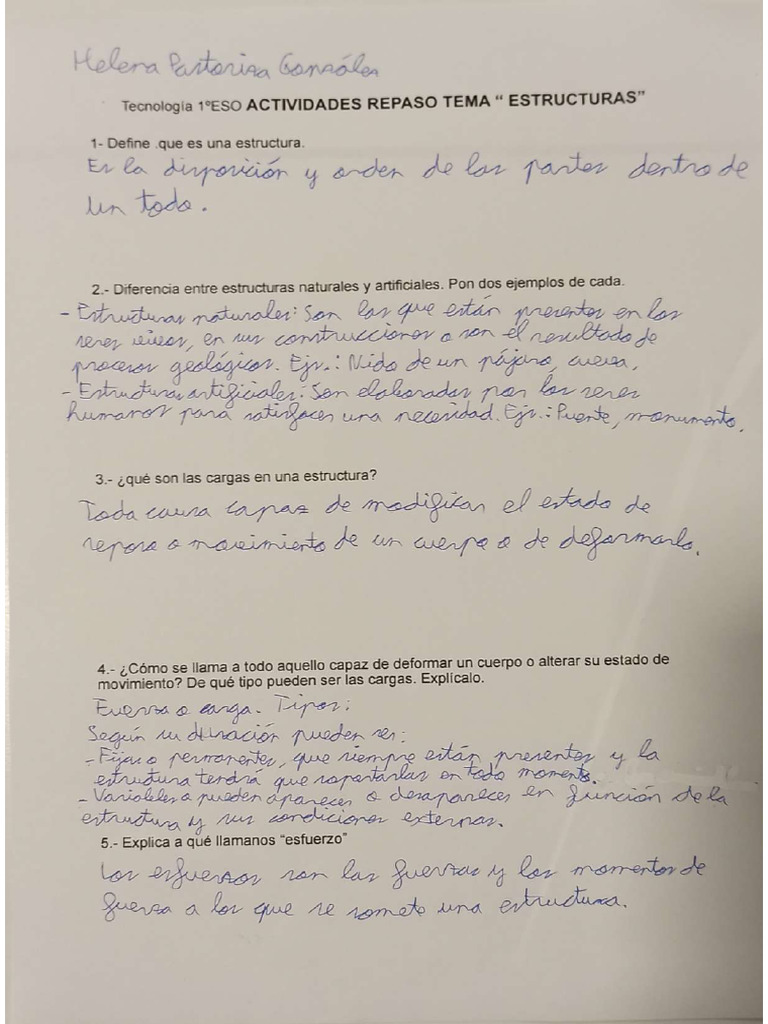 Helena Pastoriza González
Tecnología 1ºESO ACTIVIDADES REPASO TEMA “ ESTRUCTURAS”
1- Define .que es una estructura.
Es la disposición y orden de las partes dentro de
un todo.
2.- Diferencia entre estructuras naturales y artificiales. Pon dos ejemplos de cada.
- Estructuras naturales: Son las que están presentes en los
seres vivos, en sus construcciones o son el resultado de
procesos geológicos. Ejs.: Nido de un pájaro, cueva.
- Estructuras artificiales: Son elaboradas por los seres
humanos para satisfacer una necesidad. Ejs.: Puente, monumento.
3.- ¿qué son las cargas en una estructura?
Toda causa capaz de modificar el estado de
reposo o movimiento de un cuerpo o de deformarlo.
4.- ¿Cómo se llama a todo aquello capaz de deformar un cuerpo o alterar su estado de
movimiento? De qué tipo pueden ser las cargas. Explícalo.
Fuerza o carga. Tipos:
Según su duración pueden ser:
- Fijas o permanentes, que siempre están presentes y la
estructura tendrá que soportarlas en todo momento.
- Variables o pueden aparecer o desaparecer en función de la
estructura y sus condiciones externas.
5.- Explica a qué llamanos “esfuerzo”
Los esfuerzos son las fuerzas y los momentos de
fuerza a los que se somete una estructura.